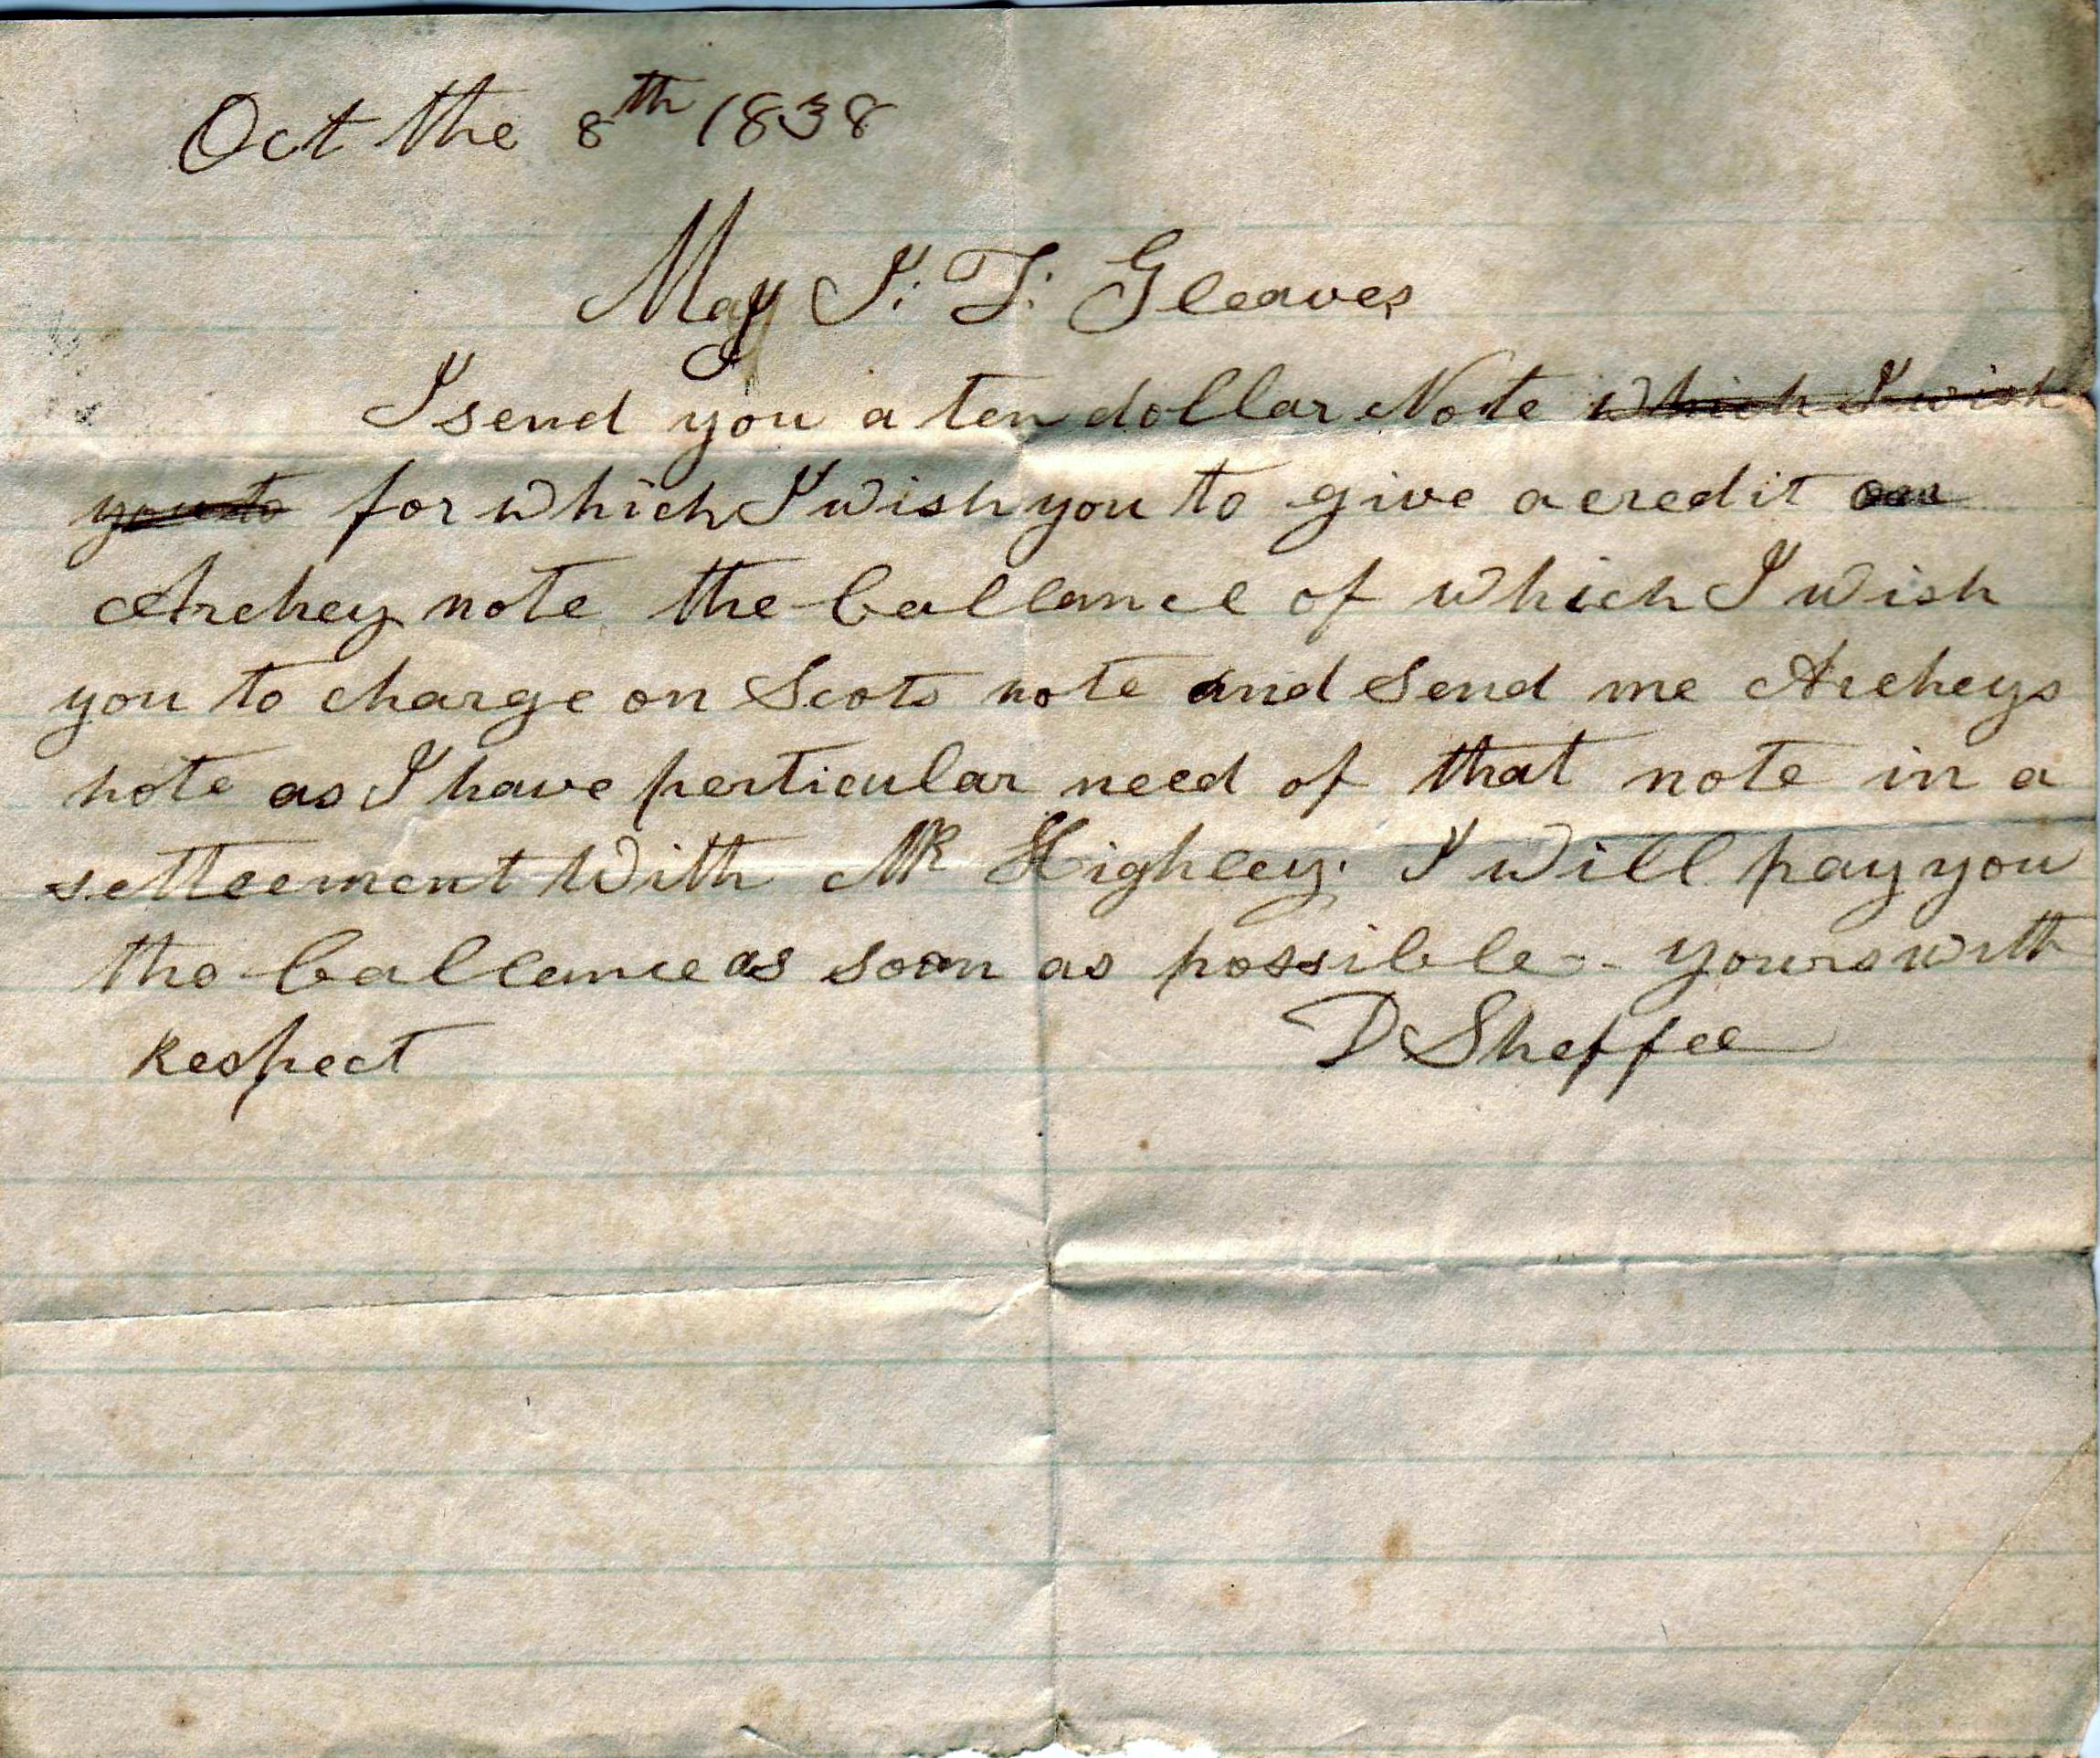 Oct the 8th 1838
Maj J. T. Gleaves
I send you a ten dollar Note which I wish
you to for which I wish you to give a credit on
Archey note the ballance of which I wish
you to charge on Scots note and send me Archeys
note as I have perticular need of that note in a
settleement With MR Highley. I will pay you
the ballance as soon as possible - yours with
Respect D Sheffee